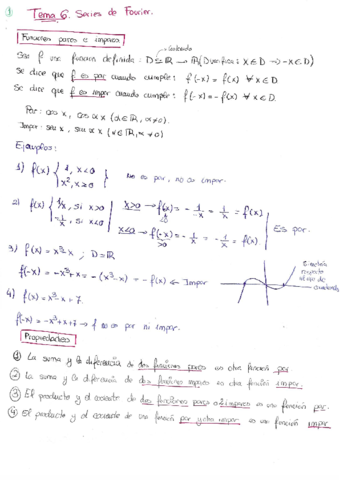 Tema 6. Series de Fourier.
Funciones pares e impares
Sea f una función definida: D⊆ℝ → ℝ (D verifica: x∈D ⇒ -x∈D)
Se dice que f es par cuando cumple: f(-x) = f(x) ∀x∈D
Se dice que f es impar cuando cumple: f(-x) = -f(x) ∀x∈D.
Par: cos x, cos αx (α∈ℝ, α≠0).
Impar: sen x, sen αx (α∈ℝ, α≠0)
Ejemplos:
1) f(x) { 1, x<0
x², x≥0 } No es par, no es impar.
2) f(x) { 1/x, si x>0
-1/x, si x<0
x>0 → f(-x) = -1/-x = 1/x = f(x)
x<0 → f(-x) = 1/-x = -1/x = f(x).
Es par.
3) f(x) = x³-x ; D=ℝ
f(-x) = -x³+x = -(x³-x) = -f(x) ← Impar
Simetría respecto al
4) f(x) = x³-x+7.
f(-x) = -x³+x+7 → f no es par ni impar.
Propiedades
① La suma y la diferencia de dos funciones pares es otra función par
② La suma y la diferencia de dos funciones impares es otra función impar.
③ El producto y el cociente de dos funciones pares o impares es una función par.
④ El producto y el cociente de una función par y otra impar es una función impar